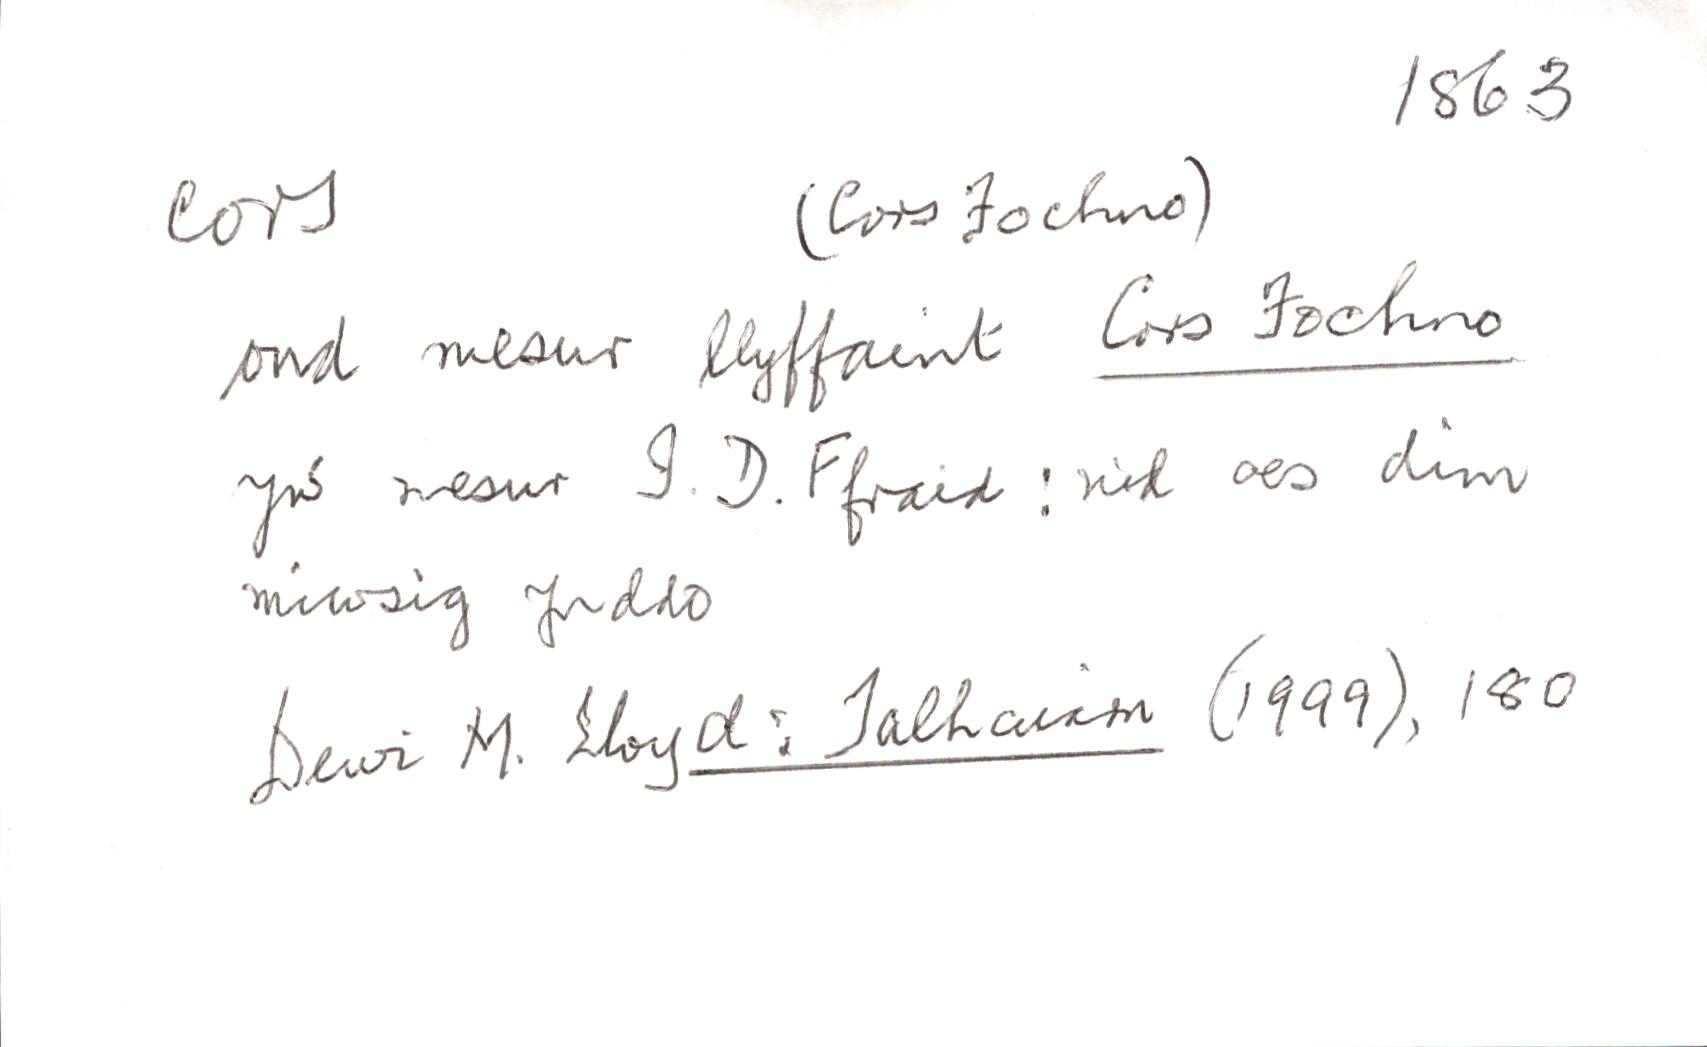 1863
cors (Cors Fochno)
ond mesur llyffaint Cors Fochno
yw mesur I. D. Ffraid : nid oes dim
miwsig ynddo
Dewi M. Lloyd : Talhaiarn (1999), 180